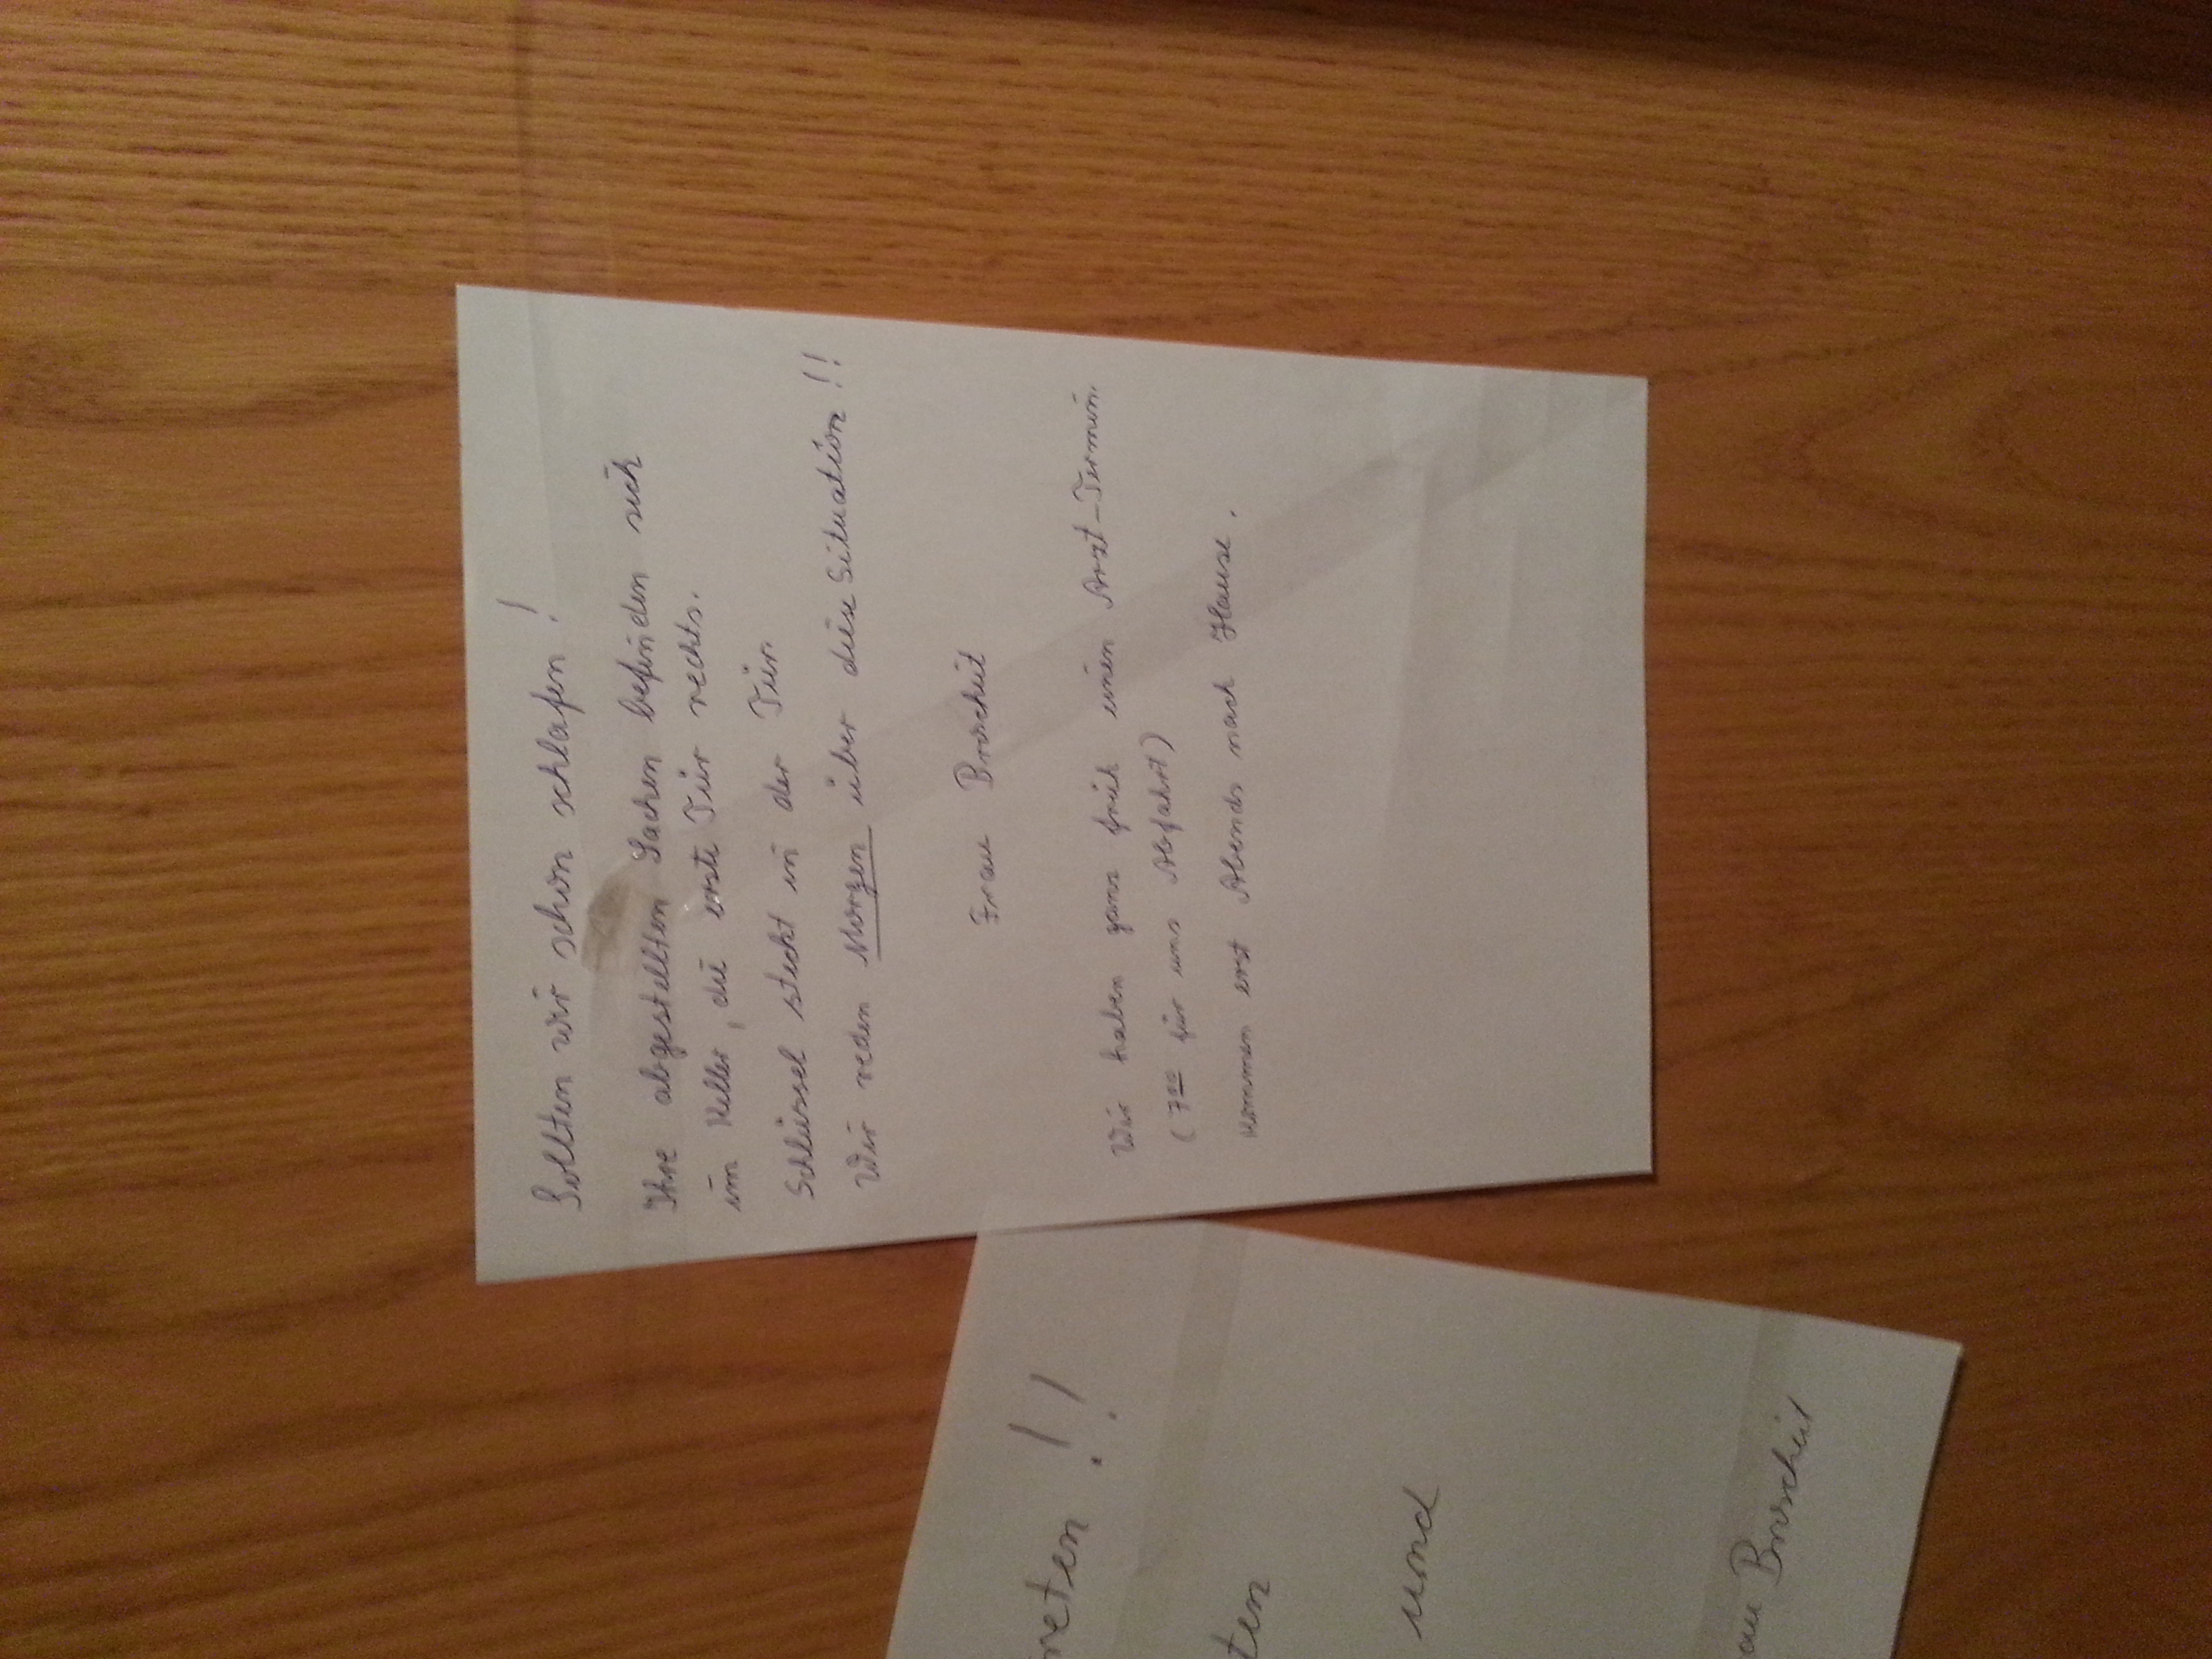 Sollten wir schon schlafen !
Ihre abgestellten Sachen befinden sich
im Keller, die erste Tür rechts.
Schlüssel steckt in der Tür.
Wir reden Morgen über diese Situation !!
Frau Broscheit
Wir haben ganz früh einen Arzt-Termin.
(7⁰⁰ für uns Abfahrt)
kommen erst Abends nach Hause.
reten !!
ten
und
au Broscheit